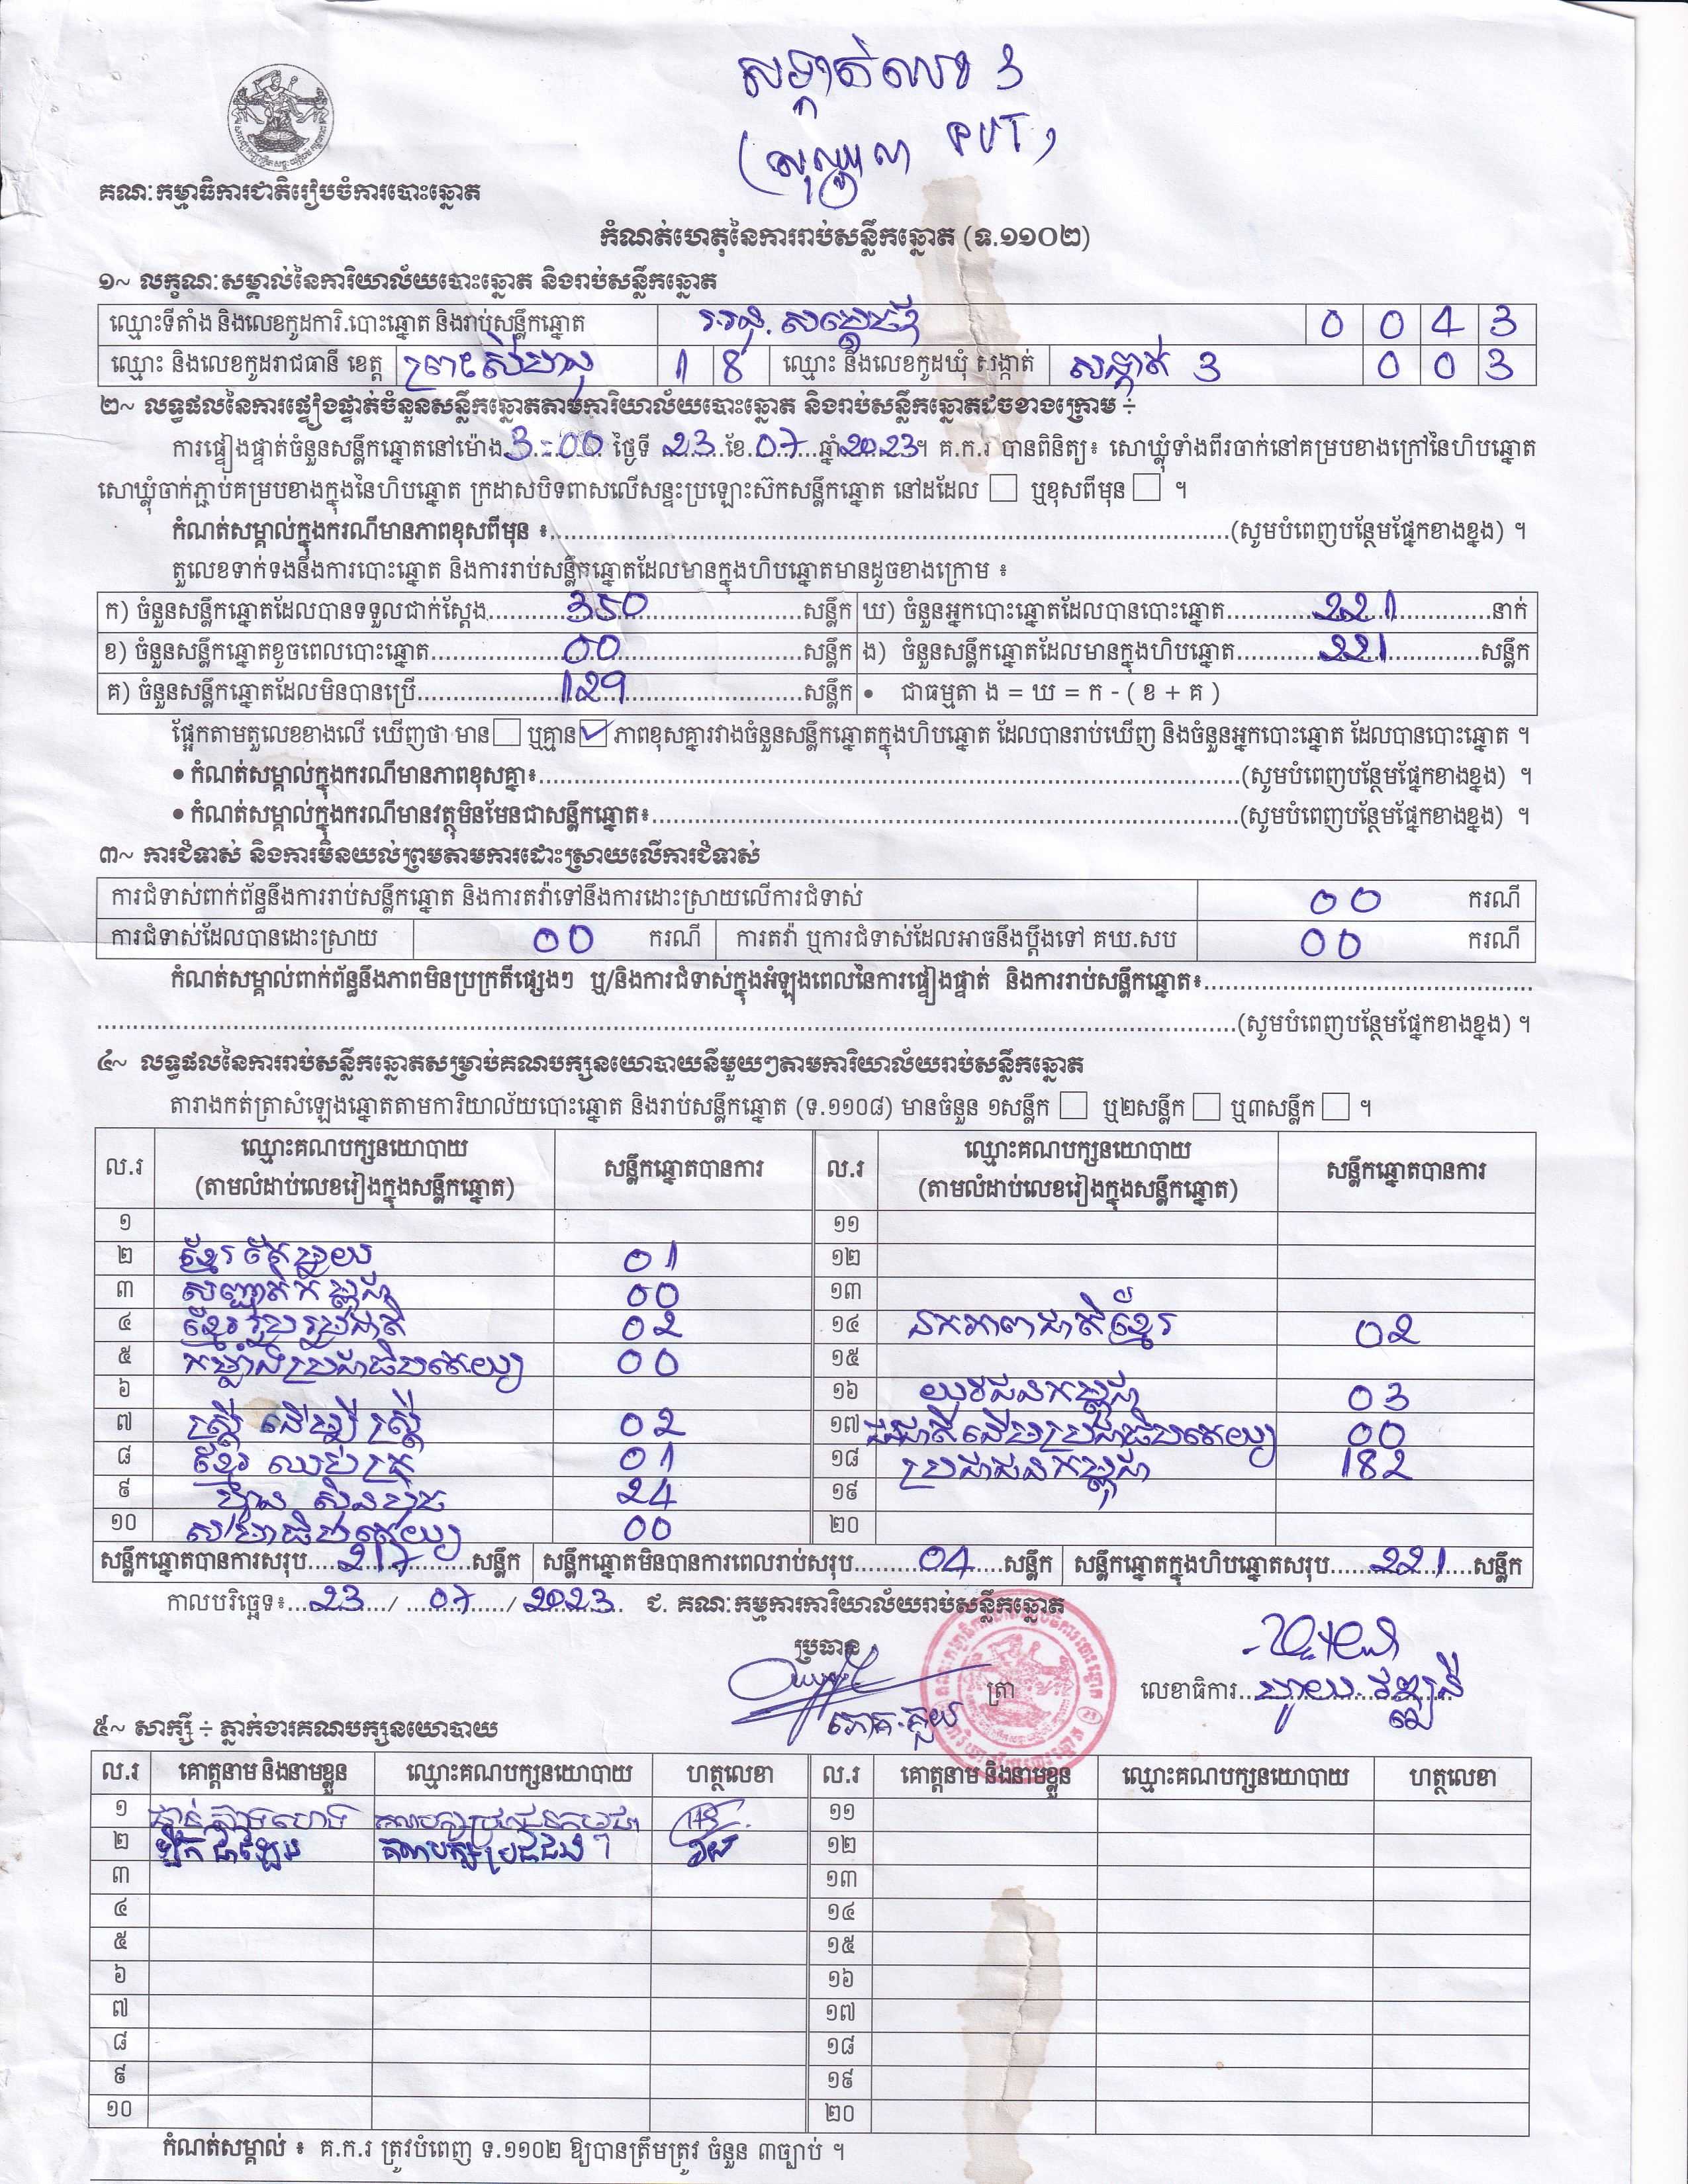 សង្កាត់លេខ 3
PVT)
គណៈកម្មាធិការជាតិរៀបចំការបោះឆ្នោត
កំណត់ហេតុនៃការរាប់សន្លឹកឆ្នោត (ទ.១១០២)
១~ លក្ខណៈសម្គាល់នៃការិយាល័យបោះឆ្នោត និងរាប់សន្លឹកឆ្នោត
ឈ្មោះទីតាំង និងលេខកូដការិ.បោះឆ្នោត និងរាប់សន្លឹកឆ្នោត 0 0 4 3
ឈ្មោះ និងលេខកូដរាជធានី ខេត្ត ព្រះសីហនុ 1 8 ឈ្មោះ និងលេខកូដឃុំ សង្កាត់ សង្កាត់ 3 0 0 3
២~ លទ្ធផលនៃការផ្ទៀងផ្ទាត់ចំនួនសន្លឹកឆ្នោតតាមការិយាល័យបោះឆ្នោត និងរាប់សន្លឹកឆ្នោតដូចខាងក្រោម ÷
ការផ្ទៀងផ្ទាត់ចំនួនសន្លឹកឆ្នោតនៅម៉ោង 3:00 ថ្ងៃទី 23 ខែ 07 ឆ្នាំ 2023។ គ.ក.រ បានពិនិត្យ៖ សោឃ្លុំទាំងពីរចាក់នៅគម្របខាងក្រៅនៃហិបឆ្នោត
សោឃ្លុំចាក់ភ្ជាប់គម្របខាងក្នុងនៃហិបឆ្នោត ក្រដាសបិទពាសលើសន្ទះប្រឡោះស៊កសន្លឹកឆ្នោត នៅដដែល ☐ ឬខុសពីមុន ☐ ។
កំណត់សម្គាល់ក្នុងករណីមានភាពខុសពីមុន ៖..........(សូមបំពេញបន្ថែមផ្នែកខាងខ្នង) ។
តួលេខទាក់ទងនឹងការបោះឆ្នោត និងការរាប់សន្លឹកឆ្នោតដែលមានក្នុងហិបឆ្នោតមានដូចខាងក្រោម ៖
ក) ចំនួនសន្លឹកឆ្នោតដែលបានទទួលជាក់ស្តែង 350 សន្លឹក ឃ) ចំនួនអ្នកបោះឆ្នោតដែលបានបោះឆ្នោត 221 នាក់
ខ) ចំនួនសន្លឹកឆ្នោតខូចពេលបោះឆ្នោត 00 សន្លឹក ង) ចំនួនសន្លឹកឆ្នោតដែលមានក្នុងហិបឆ្នោត 221 សន្លឹក
គ) ចំនួនសន្លឹកឆ្នោតដែលមិនបានប្រើ 129 សន្លឹក • ជាធម្មតា ង = ឃ = ក - ( ខ + គ )
ផ្អែកតាមតួលេខខាងលើ ឃើញថា មាន ☐ ឬគ្មាន ☑ ភាពខុសគ្នារវាងចំនួនសន្លឹកឆ្នោតក្នុងហិបឆ្នោត ដែលបានរាប់ឃើញ និងចំនួនអ្នកបោះឆ្នោត ដែលបានបោះឆ្នោត ។
• កំណត់សម្គាល់ក្នុងករណីមានភាពខុសគ្នា៖..........(សូមបំពេញបន្ថែមផ្នែកខាងខ្នង) ។
• កំណត់សម្គាល់ក្នុងករណីមានវត្ថុមិនមែនជាសន្លឹកឆ្នោត៖..........(សូមបំពេញបន្ថែមផ្នែកខាងខ្នង) ។
៣~ ការជំទាស់ និងការមិនយល់ព្រមតាមការដោះស្រាយលើការជំទាស់
ការជំទាស់ពាក់ព័ន្ធនឹងការរាប់សន្លឹកឆ្នោត និងការតវ៉ាទៅនឹងការដោះស្រាយលើការជំទាស់ 00 ករណី
ការជំទាស់ដែលបានដោះស្រាយ 00 ករណី ការតវ៉ា ឬការជំទាស់ដែលអាចនឹងប្តឹងទៅ គឃ.សប 00 ករណី
កំណត់សម្គាល់ពាក់ព័ន្ធនឹងភាពមិនប្រក្រតីផ្សេងៗ ឬ/និងការជំទាស់ក្នុងអំឡុងពេលនៃការផ្ទៀងផ្ទាត់ និងការរាប់សន្លឹកឆ្នោត៖..........
..........(សូមបំពេញបន្ថែមផ្នែកខាងខ្នង) ។
៤~ លទ្ធផលនៃការរាប់សន្លឹកឆ្នោតសម្រាប់គណបក្សនយោបាយនីមួយៗតាមការិយាល័យរាប់សន្លឹកឆ្នោត
តារាងកត់ត្រាសំឡេងឆ្នោតតាមការិយាល័យបោះឆ្នោត និងរាប់សន្លឹកឆ្នោត (ទ.១១០៨) មានចំនួន ១សន្លឹក ☐ ឬ២សន្លឹក ☐ ឬ៣សន្លឹក ☐ ។
ល.រ ឈ្មោះគណបក្សនយោបាយ សន្លឹកឆ្នោតបានការ ល.រ ឈ្មោះគណបក្សនយោបាយ សន្លឹកឆ្នោតបានការ
(តាមលំដាប់លេខរៀងក្នុងសន្លឹកឆ្នោត) (តាមលំដាប់លេខរៀងក្នុងសន្លឹកឆ្នោត)
១ ១១
២ ខ្មែរតែមួយ 01 ១២
៣ សញ្ជាតិកម្ពុជា 00 ១៣
៤ ខ្មែររួបរួមជាតិ 02 ១៤ ឯកភាពជាតិខ្មែរ 02
៥ កម្លាំងប្រជាធិបតេយ្យ 00 ១៥
៦ ១៦ យុវជនកម្ពុជា 03
៧ ស្ត្រីដើម្បីស្ត្រី 02 ១៧ ជនជាតិដើមប្រជាធិបតេយ្យ 00
៨ ខ្មែរឈប់ក្រ 01 ១៨ ប្រជាជនកម្ពុជា 182
៩ ហ៊្វុនស៊ិនប៉ិច 24 ១៩
១០ សំបុកឃ្មុំ 00 ២០
សន្លឹកឆ្នោតបានការសរុប 217 សន្លឹក សន្លឹកឆ្នោតមិនបានការពេលរាប់សរុប 04 សន្លឹក សន្លឹកឆ្នោតក្នុងហិបឆ្នោតសរុប 221 សន្លឹក
កាលបរិច្ឆេទ៖ 23 / 07 / 2023 ជ. គណៈកម្មការការិយាល័យរាប់សន្លឹកឆ្នោត
ប្រធាន
ត្រា លេខាធិការ
៥~ សាក្សី ÷ ភ្នាក់ងារគណបក្សនយោបាយ
ល.រ គោត្តនាម និងនាមខ្លួន ឈ្មោះគណបក្សនយោបាយ ហត្ថលេខា ល.រ គោត្តនាម និងនាមខ្លួន ឈ្មោះគណបក្សនយោបាយ ហត្ថលេខា
១ គណបក្សប្រជាជនកម្ពុជា ១១
២ គណបក្សប្រជាជន ១២
៣ ១៣
៤ ១៤
៥ ១៥
៦ ១៦
៧ ១៧
៨ ១៨
៩ ១៩
១០ ២០
កំណត់សម្គាល់ ៖ គ.ក.រ ត្រូវបំពេញ ទ.១១០២ ឱ្យបានត្រឹមត្រូវ ចំនួន ៣ច្បាប់ ។